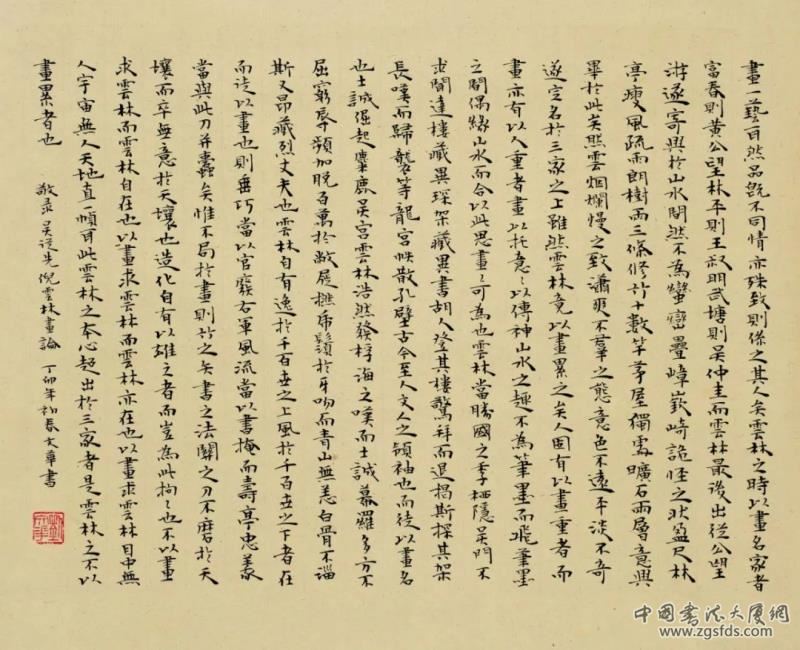 畫一藝耳然品既不同情亦殊致則係之其人矣雲林之時以畫名家者
富春則黃公望林平則王叔明武塘則吳仲圭而雲林最後出從公望
游遂寄興於山水間然不為巒疊嶂嶔崎詭怪之狀盈尺林
亭瘦風疏雨朗樹兩三條修竹十數竿茅屋獨處曠石兩層意興
畢於此矣然雲烟爛慢之致瀟爽不羣之態意色不遠平淡不奇
遂定名於三家之上雖然雲林竟以畫累之矣人固有以畫重者而
畫亦有以人重者畫以托意意以傳神山水之趣不為筆墨而飛筆墨
之間偶緣山水而合以此思畫畫可為也雲林當勝國之季栖隱吳門不
求聞達樓藏異琛架藏異書胡人登其樓驚拜而退揭斯探其架
長嘆而歸襲等龍宮帙散孔壁古今至人文人之領袖也而徒以畫名
也士誠倔起麋鹿吳宮雲林浩然發桴海之嘆而士誠幕羅多方不
屈窮辱瀕加脫百萬於敝屣撩虎鬚於牙吻而青山無恙白骨不淄
斯又昂藏烈丈夫也雲林自有逸於千百世之上風於千百世之下者在
而徒以畫也則垂巧當以官廢右軍風流當以書掩而壽亭忠義
當與此刀并蠹矣惟不局於畫則竹之矣書之法關之刀不磨於天
壤而卒無意於天壤也造化自有以雄之者而豈為此拘拘也不以畫
求雲林而雲林自在也以畫求雲林而雲林亦在也以畫求雲林目中無
人宇宙無人天地直一幀耳此雲林之本心超出於三家者是雲林之不以
畫累者也 敬录吴從先倪雲林畫論 丁卯年初春文華書
中国书法大厦網
www.zgsfds.com